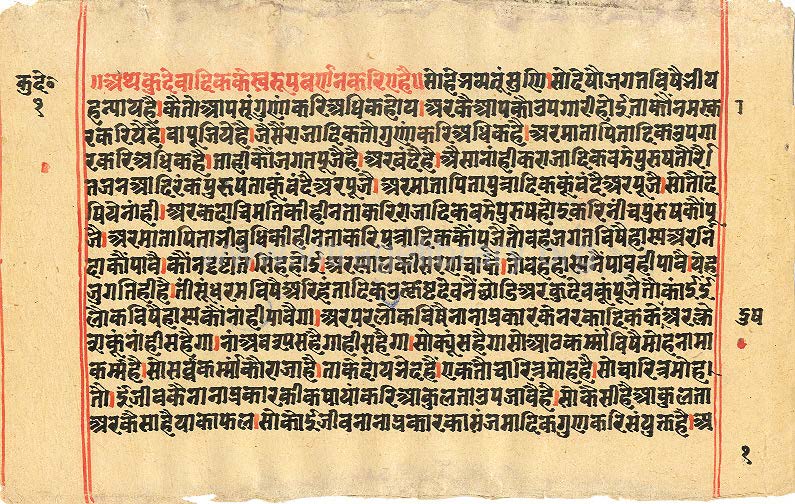 कुदे॰
१
॥अथकुदेवादिककेस्वरूपवर्णनकरिएहै॥सोहेभव्यतूंसुणि।सोदेषौजगतविषैभीय
हन्यायहै।कैतौआपसूंगुणाकरिअधिकहोय।अरकैआपकोउपगारीहो।ईताकौंनमस्क
रकरियेहै।वापूजियेहै।जैसैंराजादिकतौगुणांकरिअधिकहै।अरमातापितादिकउपगा
रकरिअधिकहै।ताहीकौंजगतपूजैहै।अरवंदैहै।ऐसानांहीकराजादिकबडेपुरुषतौरैय
तजनआदिरंकपुरुषताकूंवंदैअरपूजै।अरमातापितापुत्रादिककूंवंदैअरपूजै।सोतौदे
षियेनांही।अरकदाचिमतिकीहीनताकरिराजादिकबडेपुरुषहोइकरिनीचपुरुषकौंपू
जै।अरमातापिताभीबुधिकीहीनताकरिपुत्रादिककौंपूजैतौवहजगतविषैहास्यअरनिं
दाकौंपावै।कौंनदृष्टांत।सिंहहोइ।अरस्यालकीसरणचाहै।तौवहहास्यनैपावहीपावै।येह
जुगतिहीहै।तीसूंधरमविषैअरिहंतादिकउत्कृष्टदेवनैछोडिअरकुदेवकूंपूजैतौकांईई
लोकविषैहास्यकौंनांहीपावैगा।अरपरलोकविषैनानाप्रकारकेनरकादिककेअरक्ले
सकूंनांहीसहैगा।नांअवस्यसहैगाहीसहैगा।सोक्यूंसहैगासोआठकर्म्मांविषैमोहनामा
कर्म्महै।सोसर्वकर्म्मांकौराजाहै।ताकेदोयभेदहै।एकतौचारित्रमोहहै।सोचारित्रमोह।
तौ।ईजीवकैनानाप्रकारकीकषायांकरिआकुलताउपजावैहै।सोकैसीहैआकुलता
अरकैसाहैयाकाफल।सोकोईजीवनानाप्रकारकासंजमादिकगुणकरिसंयुक्तहै।अ
१